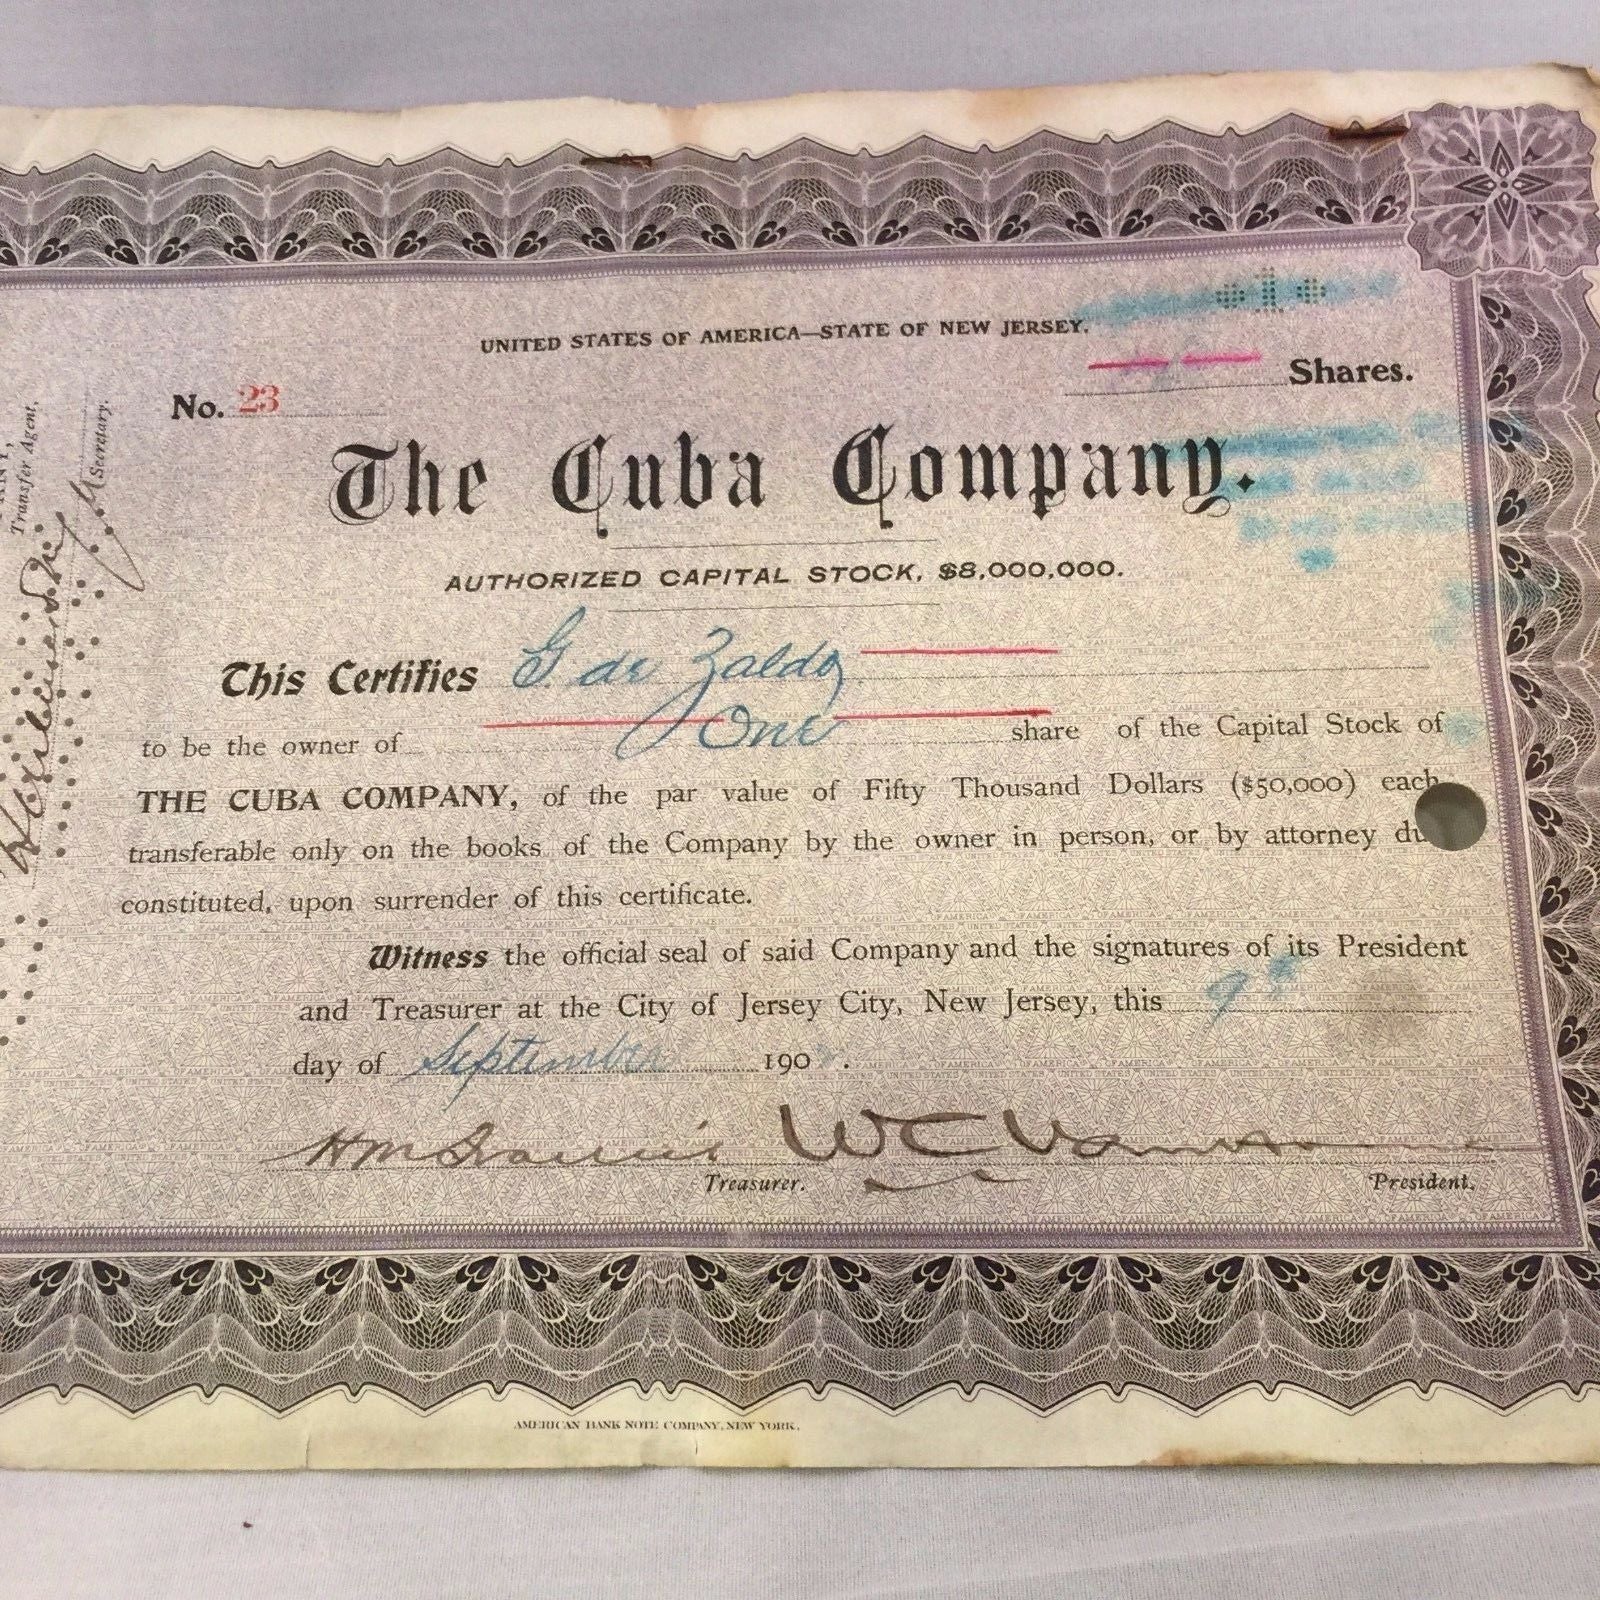 UNITED STATES OF AMERICA—STATE OF NEW JERSEY.
1
No. 23
Shares.
Transfer Agent.
Secretary.
The Cuba Company.
AUTHORIZED CAPITAL STOCK, $8,000,000.
This Certifies G. de Zaldo
to be the owner of One share of the Capital Stock of
THE CUBA COMPANY, of the par value of Fifty Thousand Dollars ($50,000) each
transferable only on the books of the Company by the owner in person, or by attorney du
constituted, upon surrender of this certificate.
Witness the official seal of said Company and the signatures of its President
and Treasurer at the City of Jersey City, New Jersey, this 9th
day of September 190 .
W C Van Horne
Treasurer. President.
AMERICAN BANK NOTE COMPANY, NEW YORK.